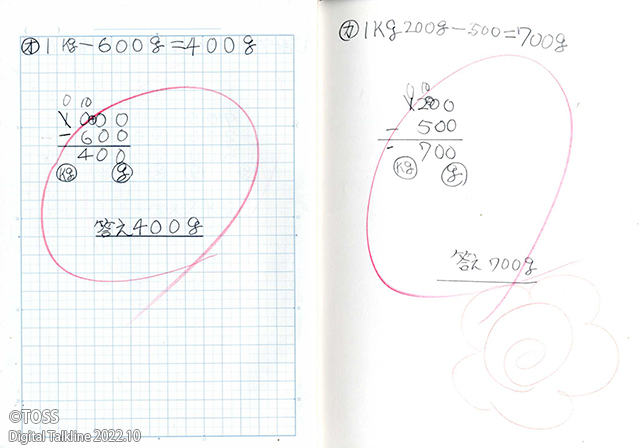 オ 1kg-600g=400g
0 10
1000
-600
400
kg g
答え400g
カ 1Kg200g-500=700g
0 10
1200
- 500
- 700
kg g
答え 700g
©TOSS
Digital Talkline 2022.10